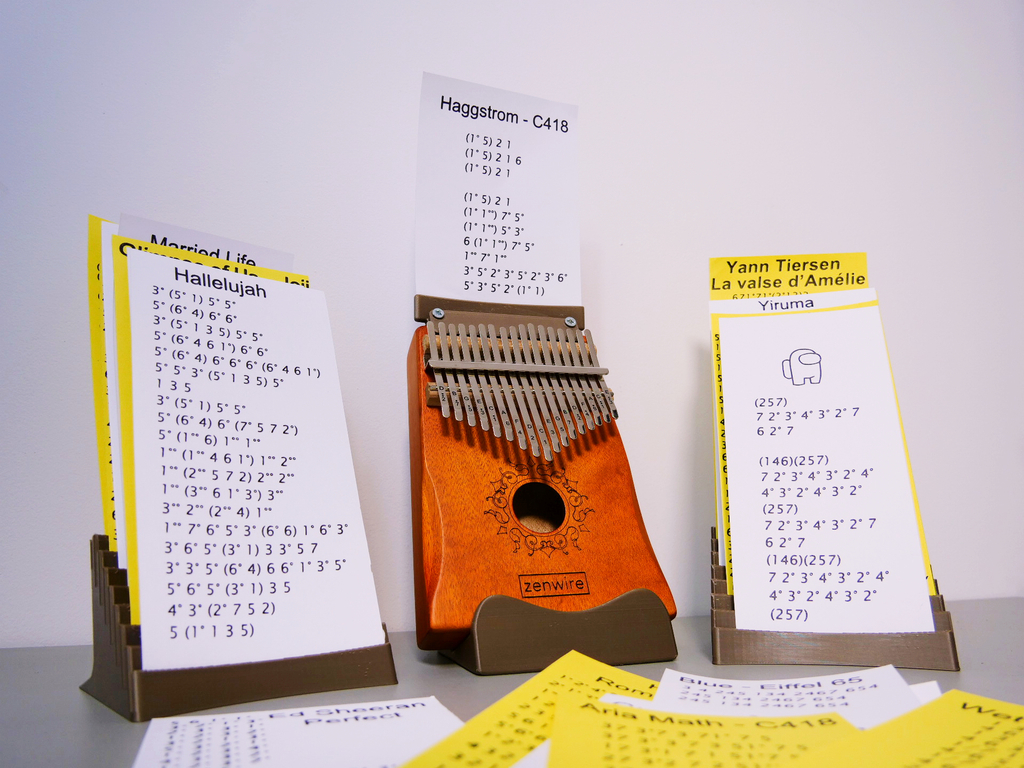 Haggstrom - C418
(1° 5) 2 1
(1° 5) 2 1 6
(1° 5) 2 1
(1° 5) 2 1
(1° 1°°) 7° 5°
(1° 1°°) 5° 3°
6 (1° 1°°) 7° 5°
1°° 7° 1°°
3° 5° 2° 3° 5° 2° 3° 6°
5° 3° 5° 2° (1° 1)
Married Life
Hallelujah
3° (5° 1) 5° 5°
5° (6° 4) 6° 6°
3° (5° 1 3 5) 5° 5°
5° (6° 4 6 1°) 6° 6°
5° (6° 4) 6° 6° 6° (6° 4 6 1°)
5° 5° 3° (5° 1 3 5) 5°
1 3 5
3° (5° 1) 5° 5°
5° (6° 4) 6° (7° 5 7 2°)
5° (1°° 6) 1°° 1°°
1°° (1°° 4 6 1°) 1°° 2°°
1°° (2°° 5 7 2) 2°° 2°°
1°° (3°° 6 1° 3°) 3°°
3°° 2°° (2°° 4) 1°°
1°° 7° 6° 5° 3° (6° 6) 1° 6° 3°
3° 6° 5° (3° 1) 3 3° 5 7
3° 3° 5° (6° 4) 6 6° 1° 3° 5°
5° 6° 5° (3° 1) 3 5
4° 3° (2° 7 5 2)
5 (1° 1 3 5)
zenwire
Yann Tiersen
La valse d'Amélie
Yiruma
(257)
7 2° 3° 4° 3° 2° 7
6 2° 7
(146)(257)
7 2° 3° 4° 3° 2° 4°
4° 3° 2° 4° 3° 2°
(257)
7 2° 3° 4° 3° 2° 7
6 2° 7
(146)(257)
7 2° 3° 4° 3° 2° 4°
4° 3° 2° 4° 3° 2°
(257)
Ed Sheeran
Perfect
Blue - Eiffel 65
3 4 245 134 2467 654
245 134 2467 654
Aria Math - C418